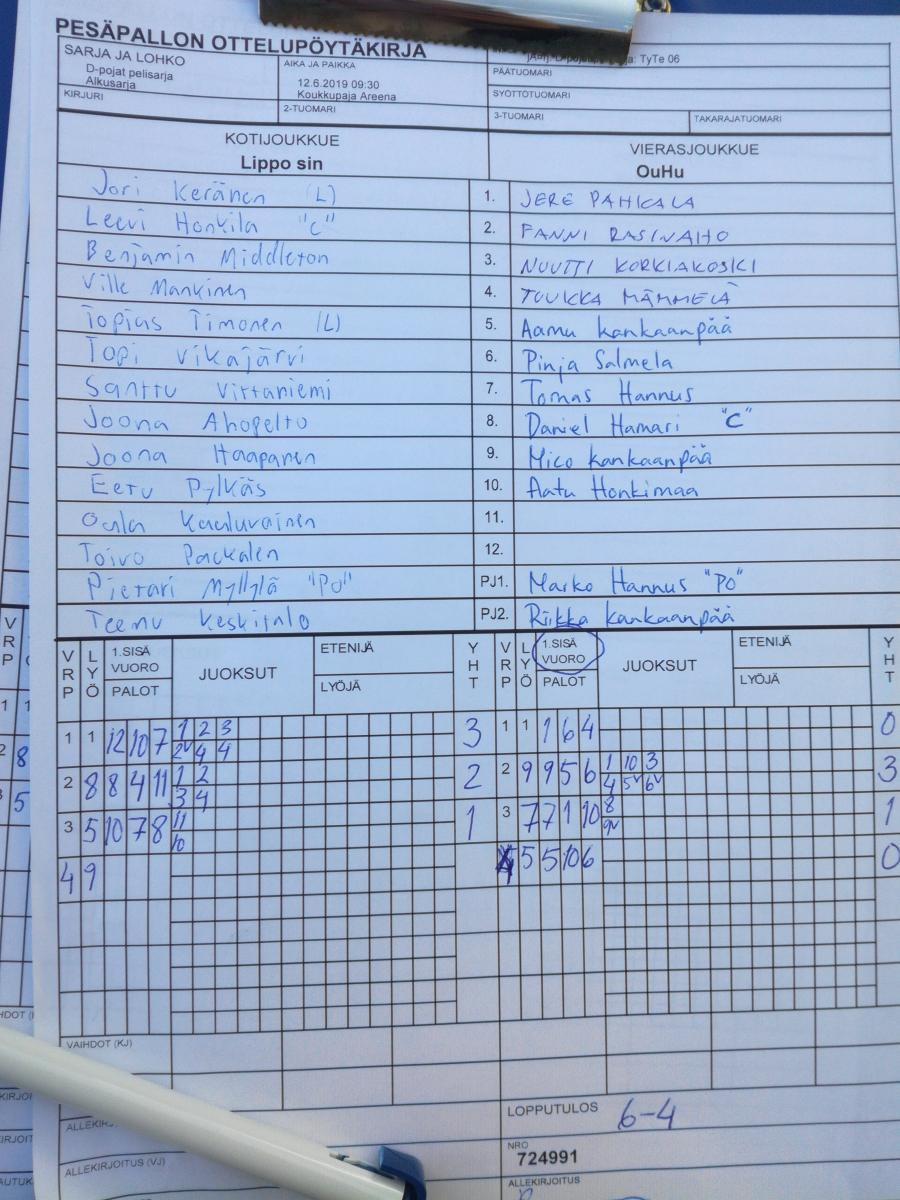 PESÄPALLON OTTELUPÖYTÄKIRJA
SARJA JA LOHKO
D-pojat pelisarja
Alkusarja
KIRJURI
AIKA JA PAIKKA
12.6.2019 09:30
Koukkupaja Areena
2-TUOMARI
TyTe 06
PÄÄTUOMARI
SYÖTTÖTUOMARI
3-TUOMARI TAKARAJATUOMARI
KOTIJOUKKUE VIERASJOUKKUE
Lippo sin OuHu
Jori Keränen (L) 1. JERE PAHKALA
Leevi Honkila "C" 2. FANNI RASINAHO
Benjamin Middleton 3. NUUTTI KORKIAKOSKI
Ville Mankinen 4. TUUKKA MÄMMELÄ
Topias Timonen (L) 5. Aamu Kankaanpää
Topi Vikajärvi 6. Pinja Salmela
Santtu Virtaniemi 7. Tomas Hannus
Joona Ahopelto 8. Daniel Hamari "C"
Joona Haapanen 9. Mico Kankaanpää
Eetu Pylkäs 10. Aatu Honkimaa
Oula 11.
Toivo 12.
Pietari Myllylä "PO" PJ1. Marko Hannus "PO"
Teemu Keskitalo PJ2. Riikka Kankaanpää
VRP LYÖ 1.SISÄ VUORO PALOT JUOKSUT ETENIJÄ LYÖJÄ YHT VRP LYÖ 1.SISÄ VUORO PALOT JUOKSUT ETENIJÄ LYÖJÄ YHT
1 1 12 10 7 1 2 3 3 1 1 1 6 4 0
2v 4 4
2 8 8 4 11 1 2 2 2 9 9 5 6 1 10 3 3
3 4 4 5v 6v
3 5 10 7 8 11 1 3 7 7 1 10 8 1
10 9v
4 9 4 5 5 10 6 0
VAIHDOT (KJ)
LOPPUTULOS 6-4
NRO
724991
ALLEKIRJOITUS (VJ) ALLEKIRJOITUS